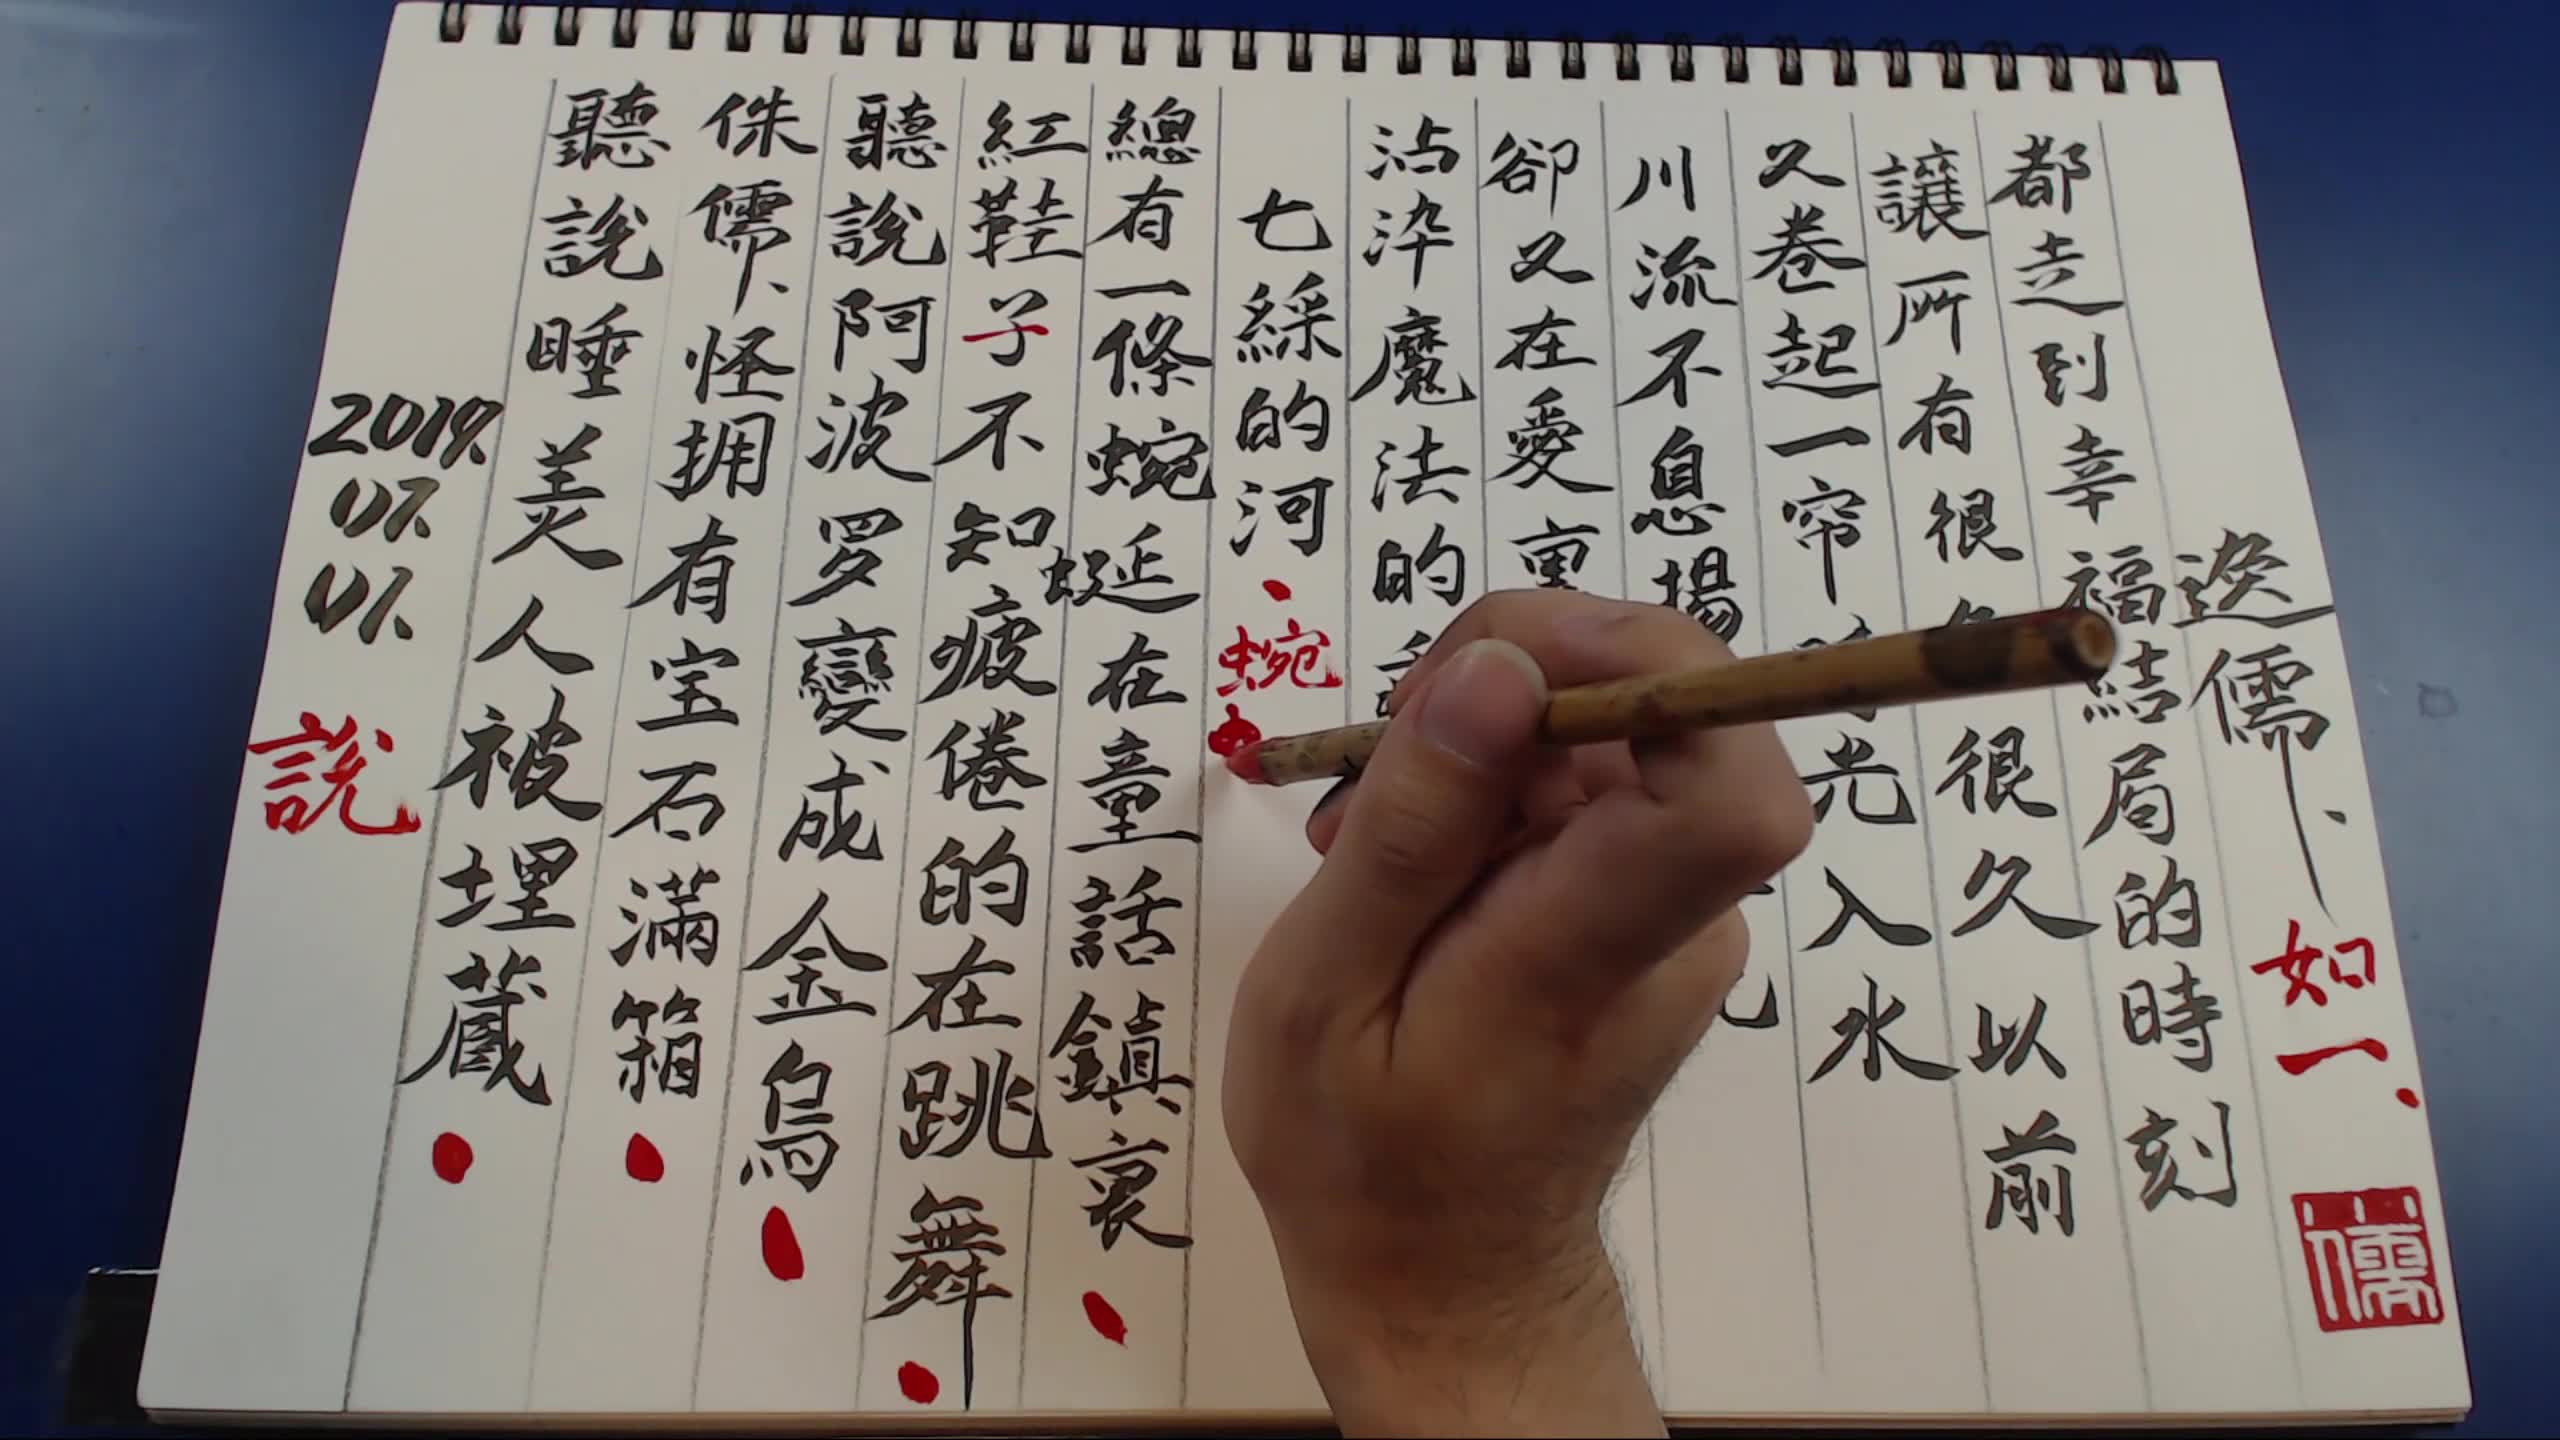 2019.
07.
07.
說
聽說睡美人被埋藏
侏儒怪拥有宝石滿箱
聽說阿波罗變成金烏
紅鞋子不知疲倦的在跳舞
總有一條蜿蜒在童話鎮裏
七綵的河
蜿虫
沾染魔法的
卻又在愛
川流不息揚
又卷起一帘光入水
讓所有很很久以前
都走到幸福結局的時刻
逸儒
如一
儒